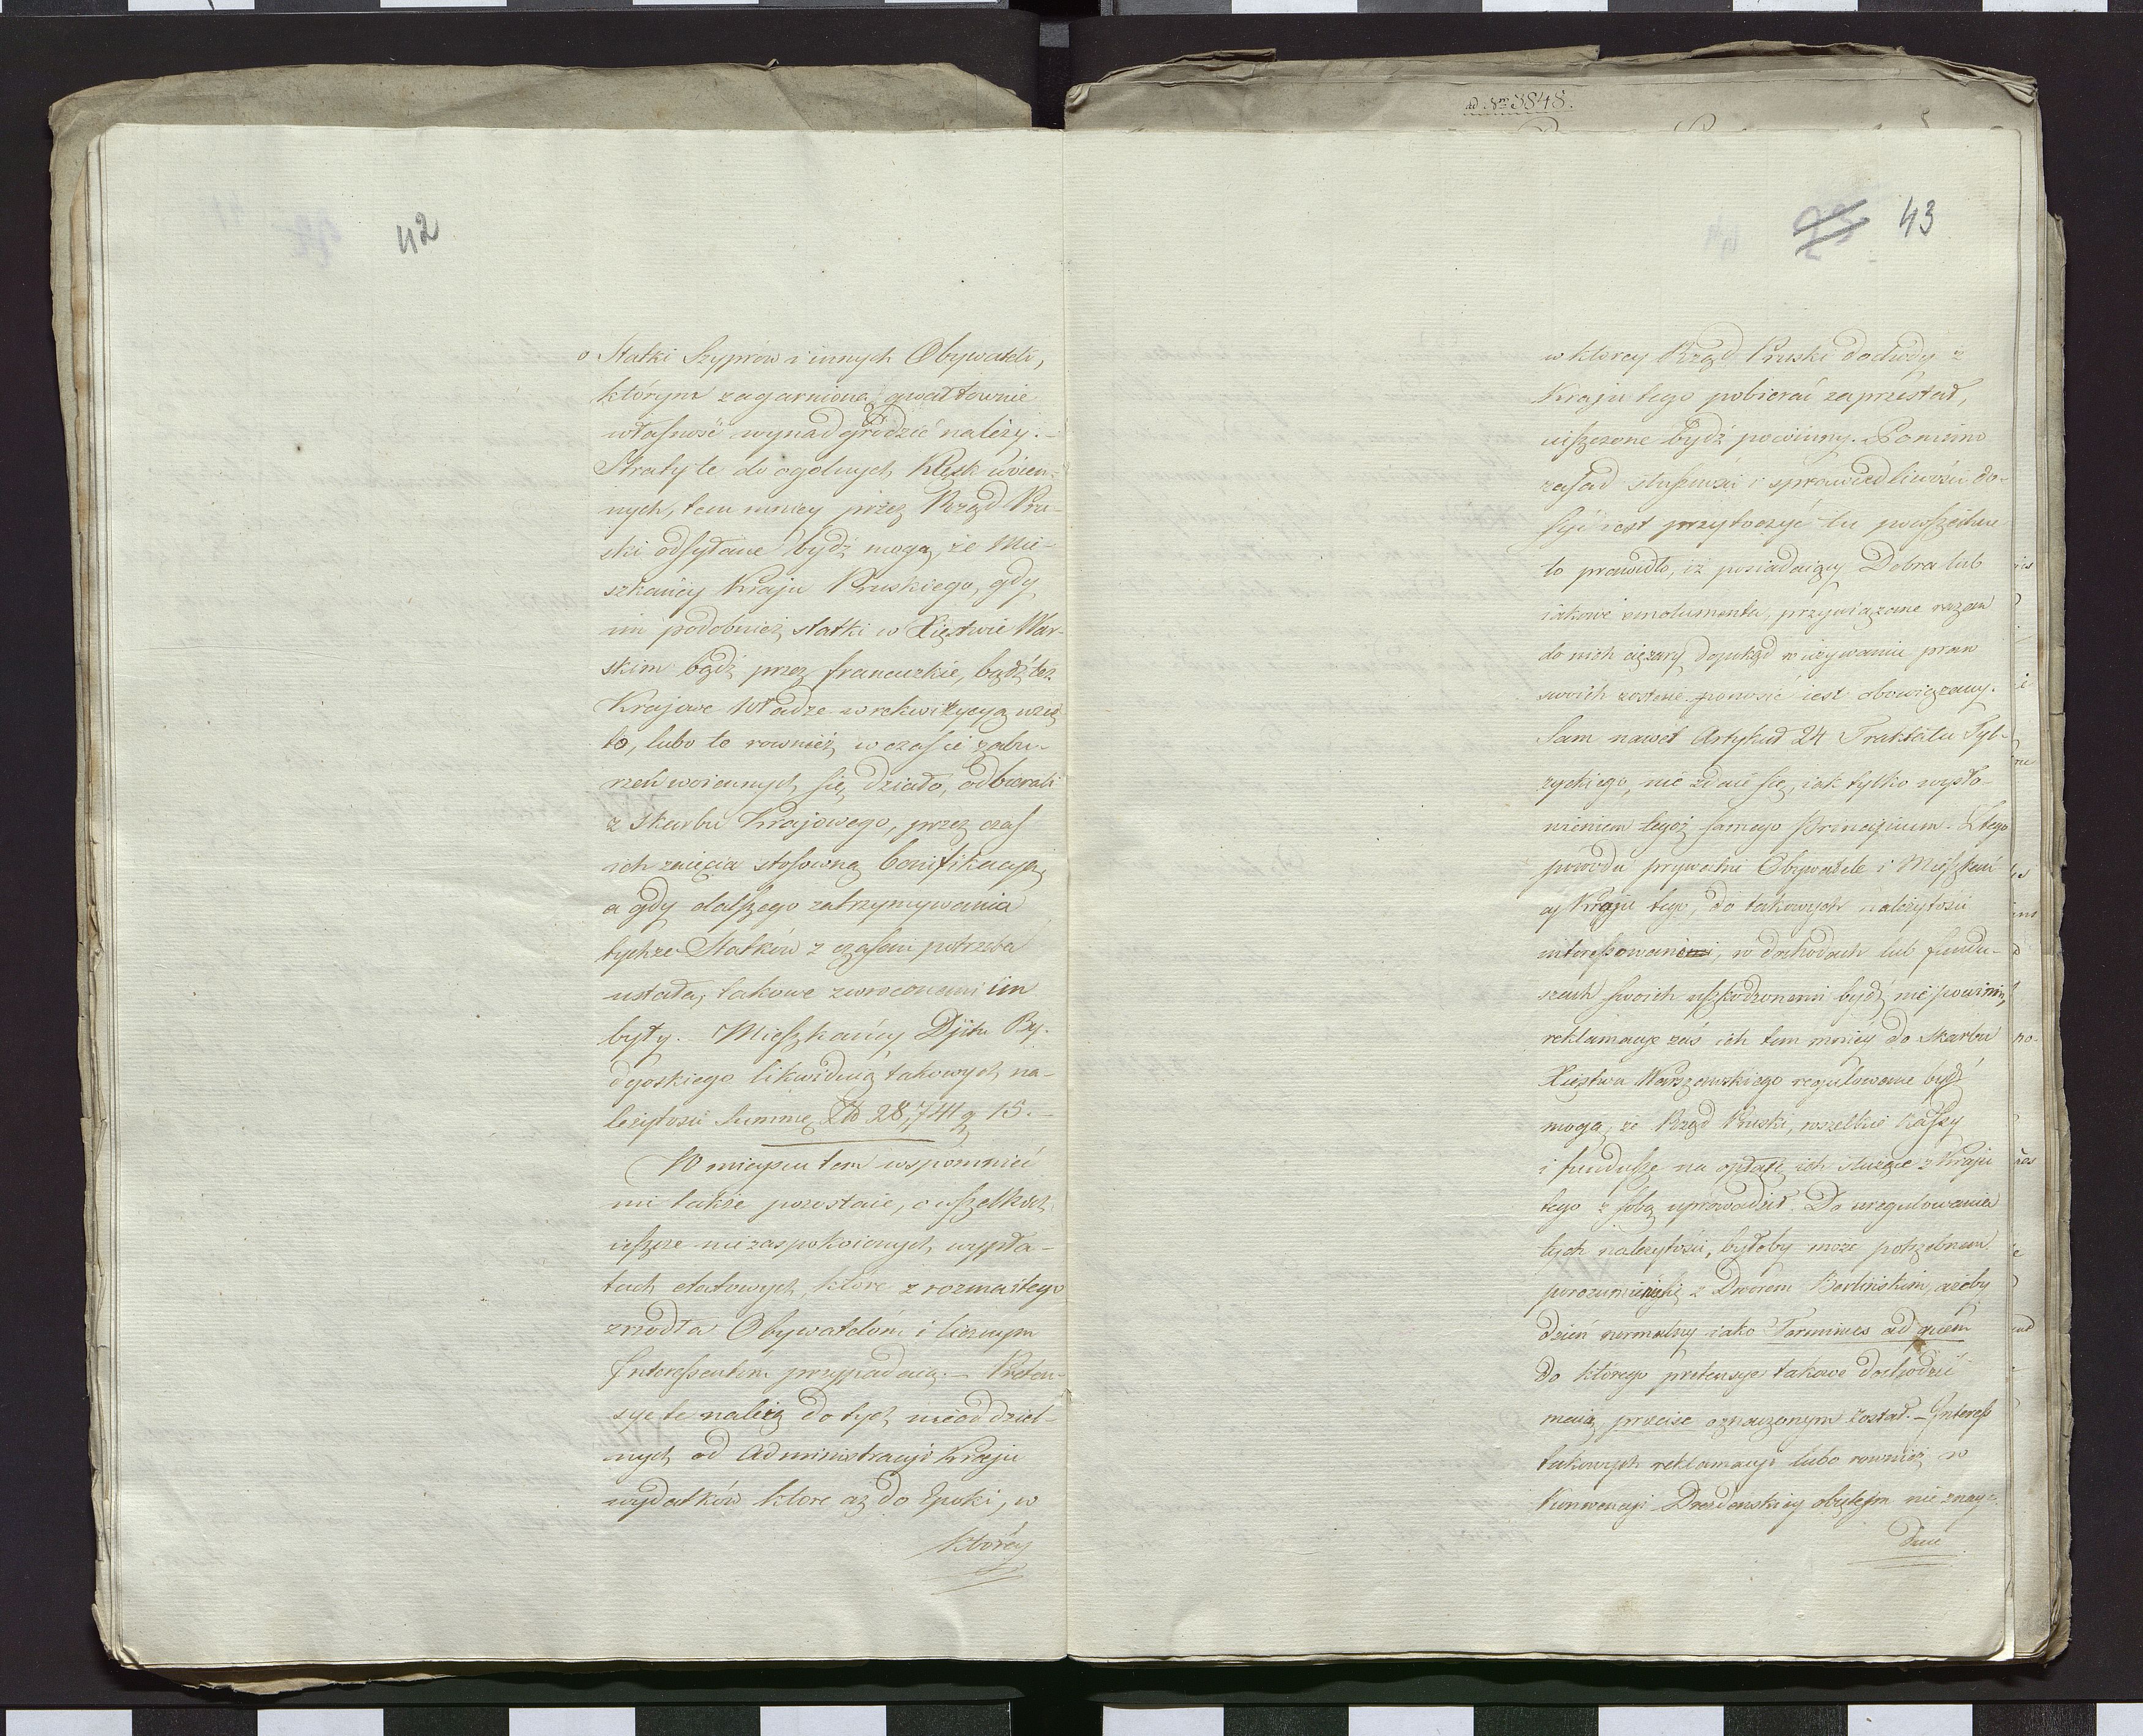 42
o Statki Szyprów i innych Obywateli,
którym zagarniona gwałtownie
własność wynadgrodzić należy. –
Straty te do ogolnych klęsk woien-
nych, tem mniey przez Rząd Pru-
ski odsyłane bydź mogą, że Mie-
szkańcy Kraju Pruskiego, gdy
im podobnież statki w Xięstwie War-
skim bądź przez francuzkie, bądź też
Krajowe Władze w rekwizycyą wzię
to, lubo to rownież w czasie zabu-
rzeń woiennych się działo, odbierali
z Skarbu Krajowego, przez czas
ich zaięcia stosowną bonifikacyą,
a gdy dalszego zatrzymywania
tychże Statków z czasem potrzeba
ustała, takowe zwroconemi im
były. Mieszkańcy Dptu By-
dgoskiego likwiduią takowych na-
leżytosci Summę Zło 28,741 g 15. –
W mieyscu tem wspomnieć
mi także pozostaie, o wszelkich
ieszcze niezaspokoionych wypła-
tach etatowych, ktore z rozmaitego
zrzodła Obywatelom i licznym
Interessentom przypadaią. – Preten-
sye te należą do tych nieoddziel-
nych od Administracyi Kraju
wydatków ktore aż do Epoki, w
ktorey
ad Nro 3848.
43
w ktorey Rząd Pruski dochody z
Kraju tego pobierać zaprzestał,
uiszczone bydź powinny. Pomimo
zasad słuszności i sprawiedliwości do-
syć iest przytoczyć tu powszechne
to prawidło, iż posiadaiący Dobra lub
iakowe emolumenta, przywiązane razem
do nich ciężary, dopokąd w używaniu praw
swoich zostaie ponosić iest obowiązany.
Sam nawet Artykuł 24 Traktatu Tyl-
zyckiego, nie zdaie się, iak tylko wysło-
wieniem tegoż samego Principium. Z tego
powodu prywatni Obywatele i Mieszkań
cy Kraju tego, do takowych należytosci
interessowani, w dochodach lub fundu-
szach swoich uszkodzonemi bydź nie powinni,
reklamacye zaś ich tem mniey do Skarbu
Xięstwa Warszawskiego regulowane bydź
mogą, że Rząd Pruski, wszelkie Kassy
i fundusze na opłatę ich służące z Kraju
tego z sobą uprowadził. Do uregulowania
tych należytosci, byłoby może potrzebnem
porozumienie się z Dworem Berlińskim, ażeby
dzień normalny iako Terminus ad quem
do którego pretensye takowe dochodzić
maią, precise oznaczonym został. – Interess
takowych reklamacyi lubo rownież w
Konwencyi Drezdeńskiey obiętym nie znay-
duie